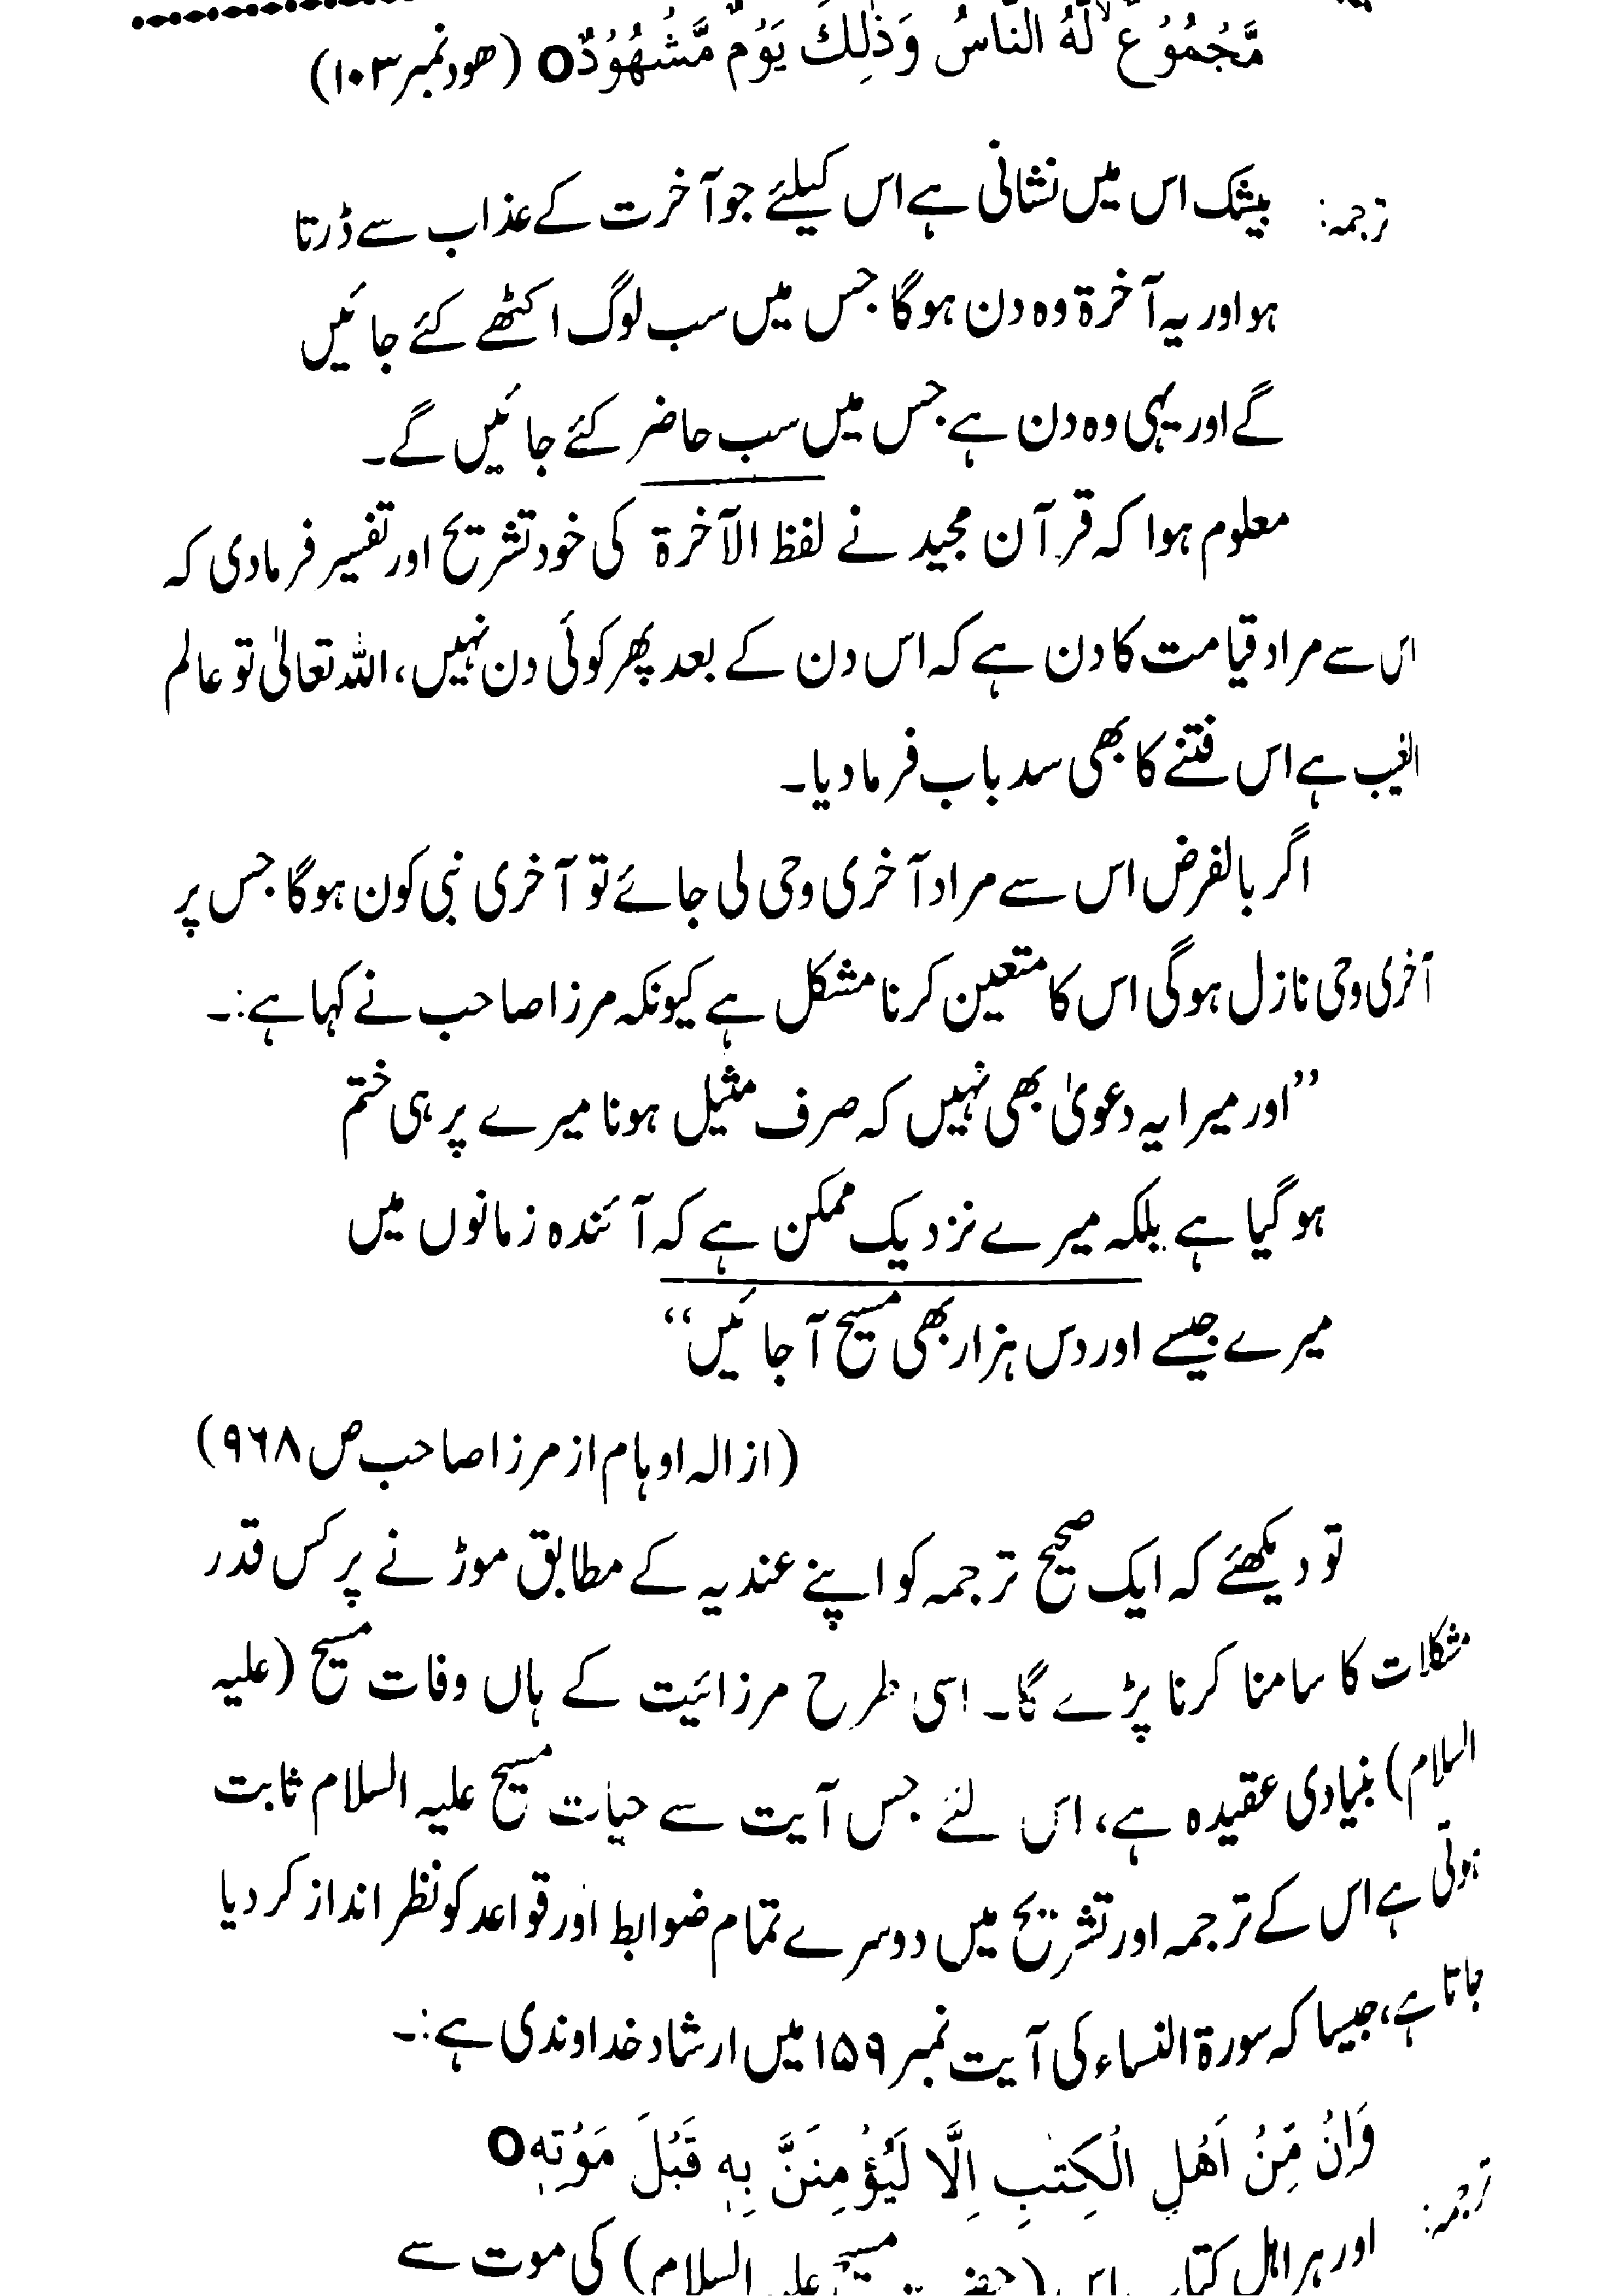 مَّجْمُوْعٌ لَّهُ النَّاسُ وَذٰلِكَ يَوْمٌ مَّشْهُوْدٌO (ھود نمبر ۱۰۳)
ترجمہ: بیشک اس میں نشانی ہے اس کیلئے جو آخرت کے عذاب سے ڈرتا
ہو اور یہ آخرۃ وہ دن ہوگا جس میں سب لوگ اکٹھے کئے جائیں
گے اور یہی وہ دن ہے جس میں سب حاضر کئے جائیں گے۔
معلوم ہوا کہ قرآن مجید نے لفظ الآخرۃ کی خود تشریح اور تفسیر فرمادی کہ
اس سے مراد قیامت کا دن ہے کہ اس دن کے بعد پھر کوئی دن نہیں، اللہ تعالیٰ تو عالم
الغیب ہے اس فتنے کا بھی سدباب فرمادیا۔
اگر بالفرض اس سے مراد آخری وحی لی جائے تو آخری نبی کون ہوگا جس پر
آخری وحی نازل ہوگی اس کا متعین کرنا مشکل ہے کیونکہ مرزا صاحب نے کہا ہے:۔
”اور میرا یہ دعویٰ بھی نہیں کہ صرف مثیل ہونا میرے پر ہی ختم
ہوگیا ہے بلکہ میرے نزدیک ممکن ہے کہ آئندہ زمانوں میں
میرے جیسے اور دس ہزار بھی مسیح آجائیں“
(ازالہ اوہام از مرزا صاحب ص ۹۶۸)
تو دیکھئے کہ ایک صحیح ترجمہ کو اپنے عندیہ کے مطابق موڑنے پر کس قدر
مشکلات کا سامنا کرنا پڑے گا۔ اسی طرح مرزائیت کے ہاں وفات مسیح (علیہ
السلام) بنیادی عقیدہ ہے، اس لئے جس آیت سے حیات مسیح علیہ السلام ثابت
ہوتی ہے اس کے ترجمہ اور تشریح میں دوسرے تمام ضوابط اور قواعد کو نظر انداز کر دیا
جاتا ہے، جیسا کہ سورۃ النساء کی آیت نمبر ۱۵۹ میں ارشاد خداوندی ہے:۔
وَاِنْ مِّنْ اَهْلِ الْكِتٰبِ اِلَّا لَيُؤْمِنَنَّ بِهٖ قَبْلَ مَوْتِهٖO
ترجمہ: اور ہر اہل کتاب اس (حضرت مسیح علیہ السلام) کی موت سے